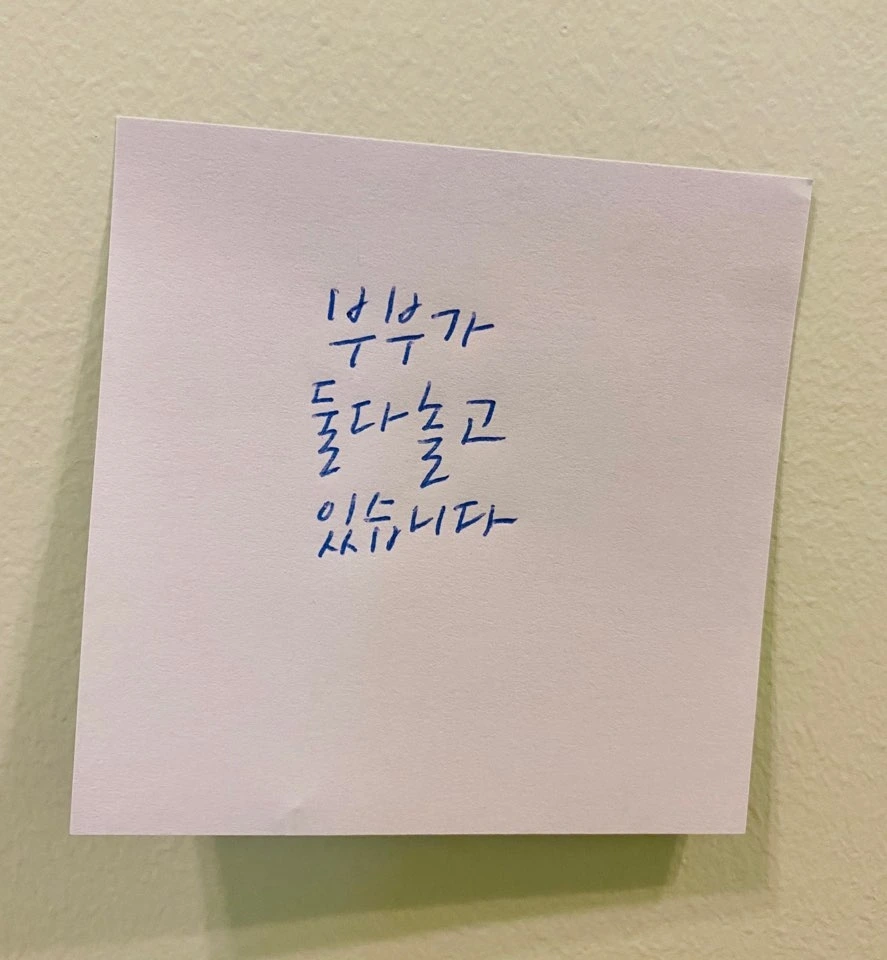 부부가
둘다놀고
있습니다